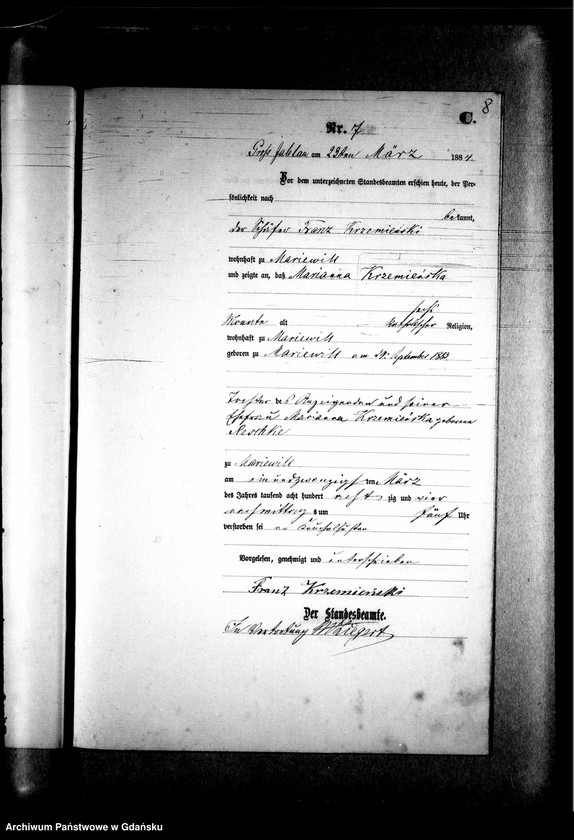 8
C.
Nr. 7
Groß Jablau am 23ten März 1884.
Vor dem unterzeichneten Standesbeamten erschien heute, der Per-
sönlichkeit nach
bekannt,
der Schäfer Franz Krzemieński
wohnhaft zu Mariewill
und zeigte an, daß Marianna Krzemieńska
sechs
Monate alt katholischer Religion,
wohnhaft zu Mariewill
geboren zu Mariewill am September 1883
Tochter des Anzeigenden und seiner
Ehefrau Marianna Krzemieńska geborene
zu Mariewill
am einundzwanzigsten März
des Jahres tausend acht hundert achtzig und vier
nachmittags um fünf Uhr
verstorben sei
Vorgelesen, genehmigt und unterschrieben
Franz Krzemieński
Der Standesbeamte.
In Vertretung
Archiwum Państwowe w Gdańsku